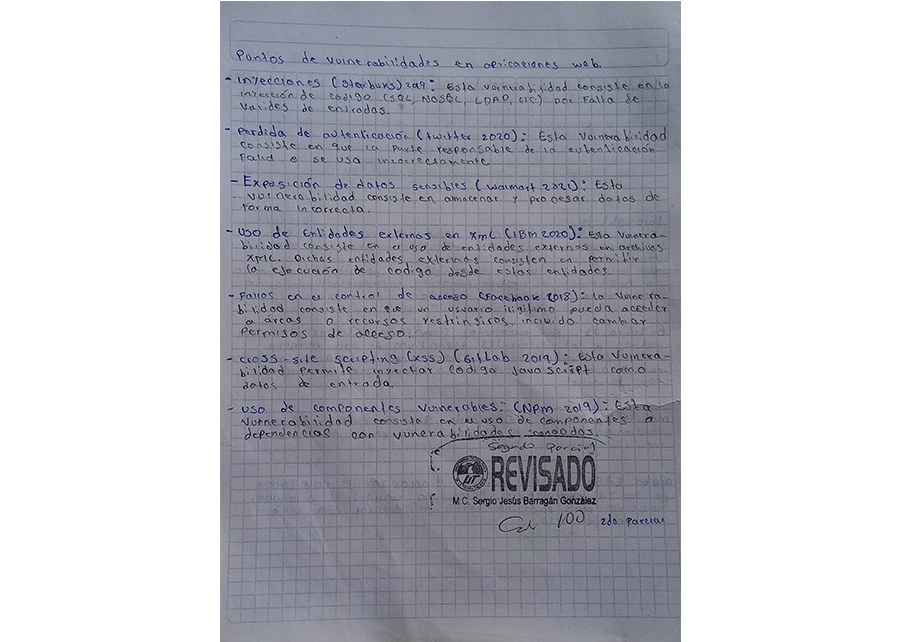 Puntos de vulnerabilidades en aplicaciones web.
- Inyecciones (Starbuks) 2019: Esta vulnerabilidad consiste en la
inyección de código (SQL, NOSQL, LDAP, etc) por falta de
valides de entradas.
- Perdida de autenticación (twitter 2020): Esta vulnerabilidad
consiste en que la parte responsable de la autenticación
falid o se usa incorrectamente
- Exposición de datos sensibles (walmart 2021): Esta
vulnerabilidad consiste en almacenar y procesar datos de
forma incorrecta.
- uso de Entidades externos en xml (IBM 2020): Esta vulnera-
bilidad consiste en el uso de entidades externos en archivos
XML. Dichas entidades externas consisten en permitir
la ejecución de codigo desde estas entidades
- Fallos en el control de acceso (Facebook 2018): la vulnera-
bilidad consiste en que un usuario iligitimo pueda acceder
a áreas o recursos restringidos, incluido cambiar
permisos de acceso.
- cross-site scripting (xss) (GitLab 2019): Esta vulnera-
bilidad permite inyectar codigo Javascript como
datos de entrada.
- uso de componentes vulnerables: (NPM 2019): Esta
vulnerabilidad consiste en el uso de componentes o
dependencias con vulnerabilidades conocidas.
Segundo parcial
UT REVISADO
M.C. Sergio Jesús Barragán González
Cal 100 2do parcial